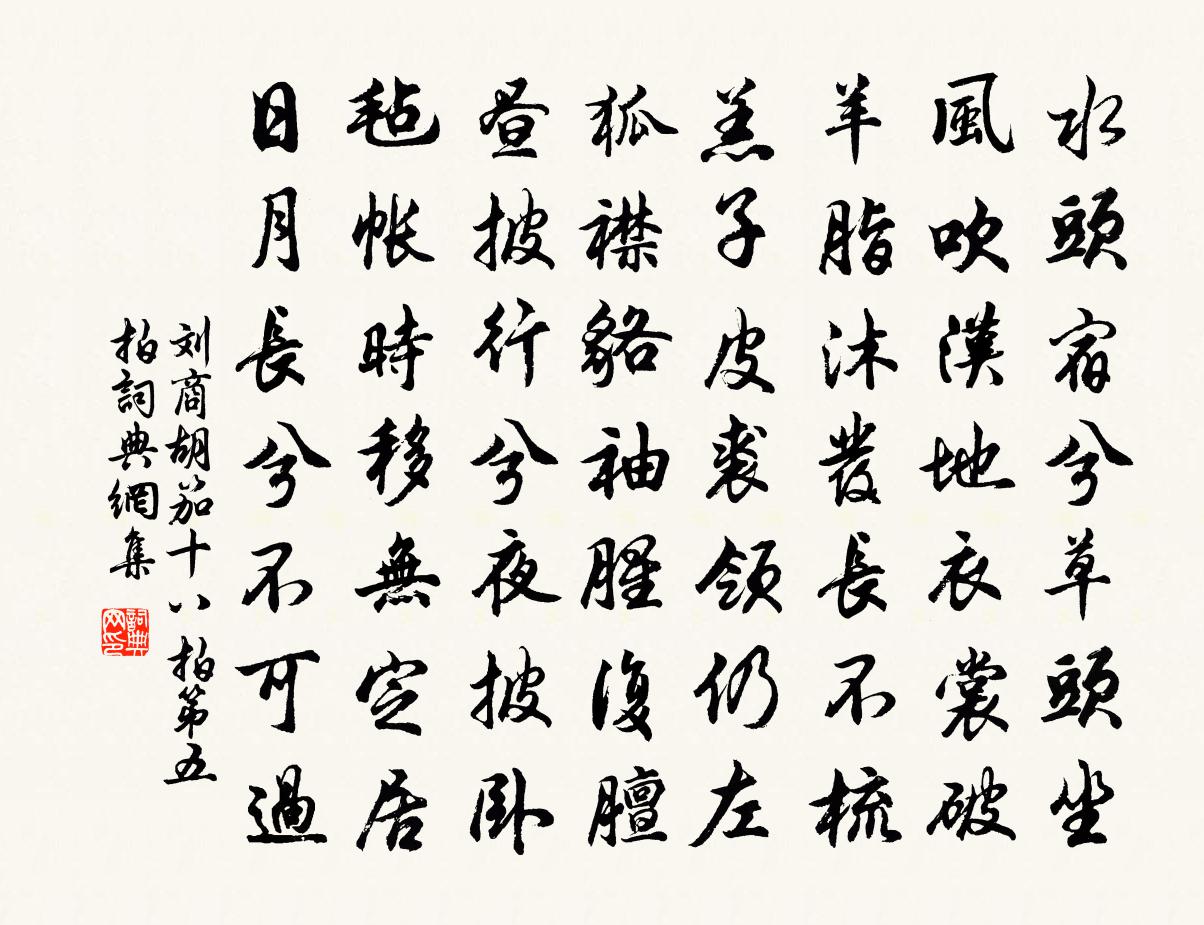 水頭宿兮草頭坐
風吹漢地衣裳破
羊脂沐發長不梳
羔子皮裘領仍左
狐襟貉袖腥復膻
晝披行兮夜披臥
毡帳時移無定居
日月長兮不可過
刘商胡笳十八拍第五
拍詞典網集
詞典网印